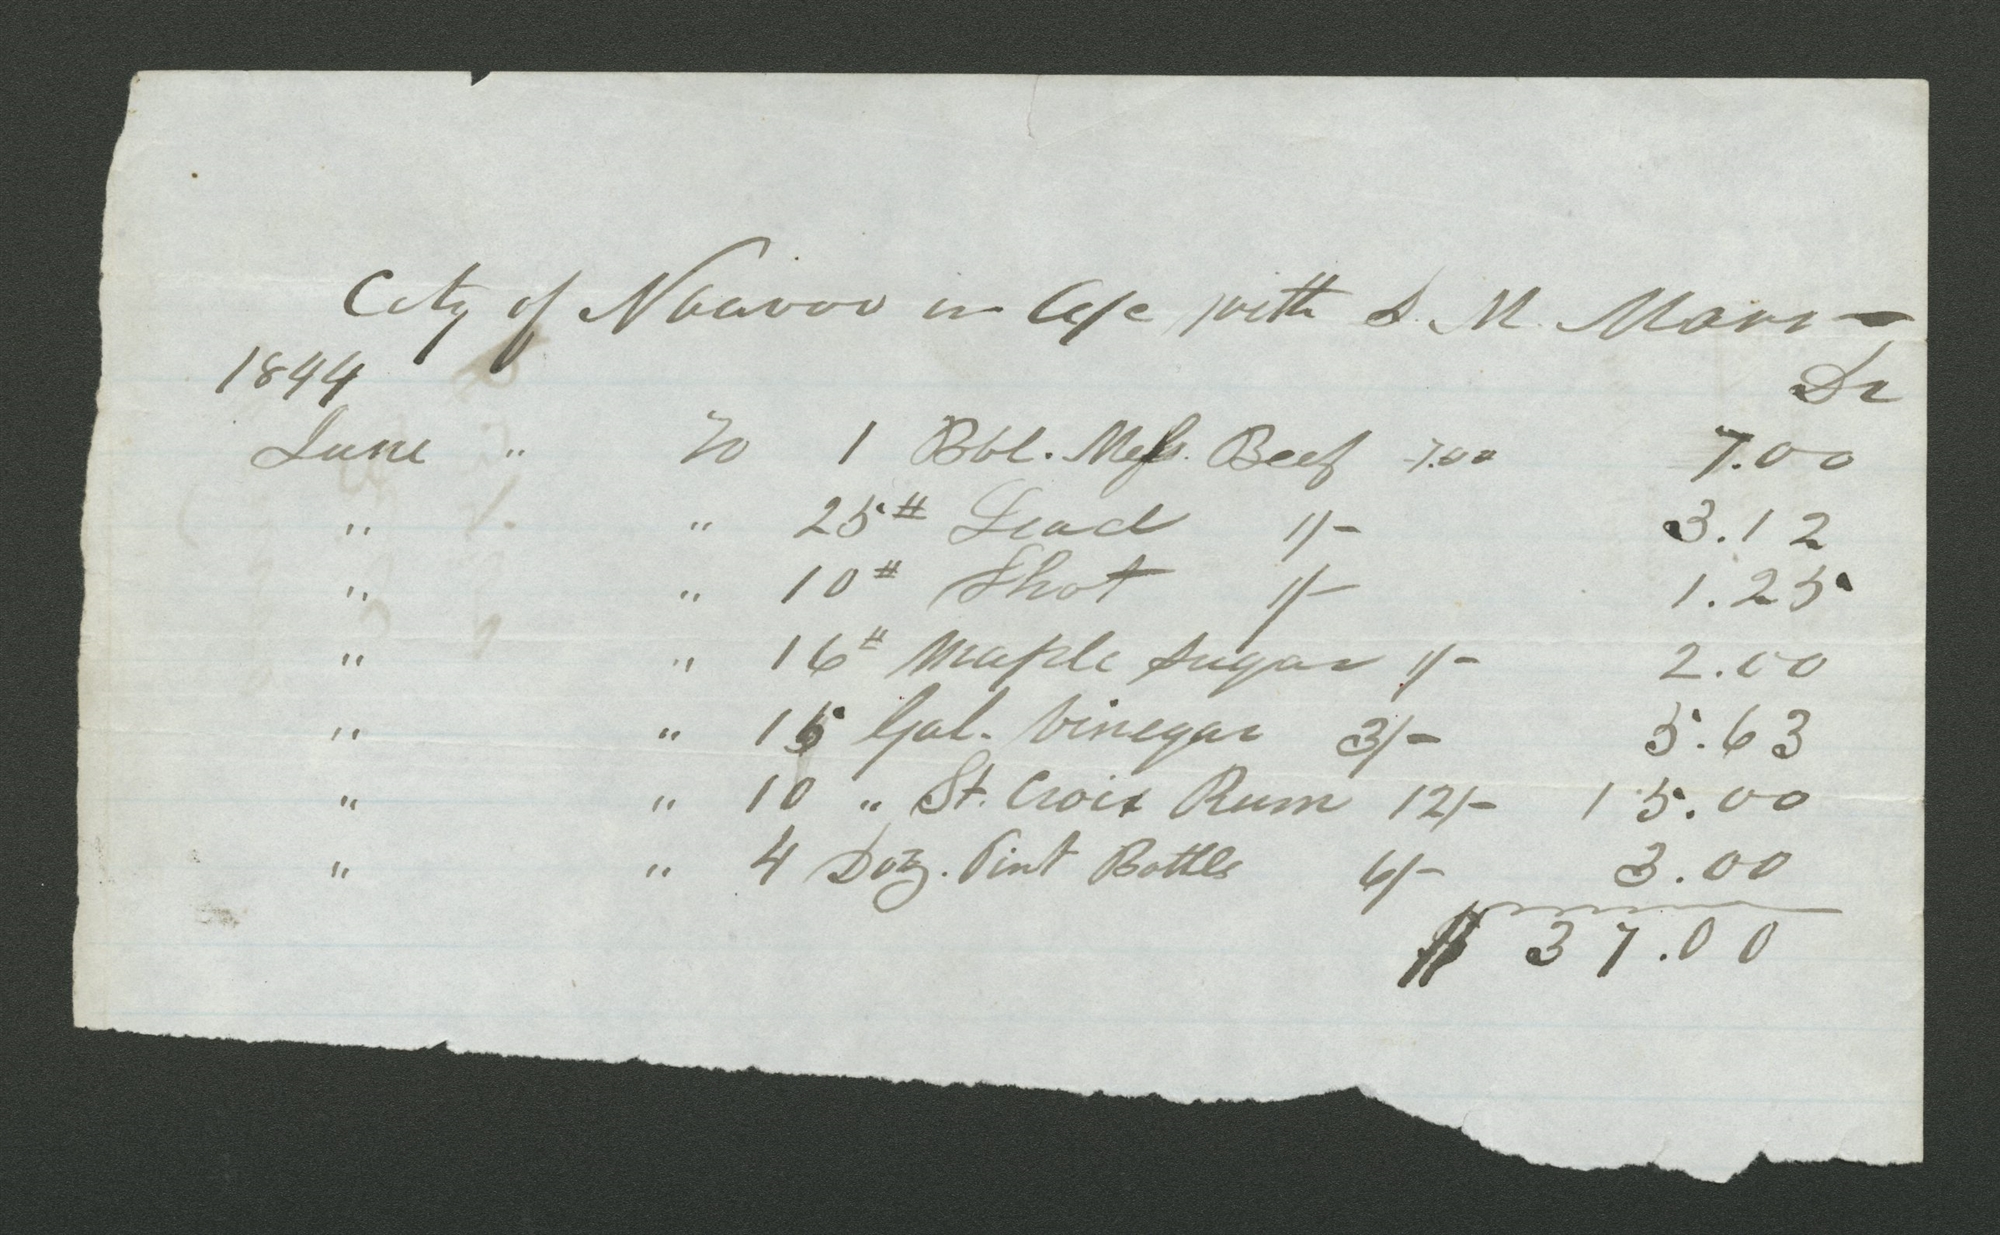 City of Nauvoo in A/c with S. M. Marr
1844 Dr
June " To 1 Bbl. Mess. Beef 7.00 7.00
" " 25# Lead 1/- 3.12
" " 10# Shot 1/- 1.25
" " 16# Maple Sugar 1/- 2.00
" " 15 Gal. Vinegar 3/- 5.63
" " 10 " St. Croix Rum 12/- 15.00
" " 4 Doz. Pint Bottls 6/- 3.00
$ 37.00